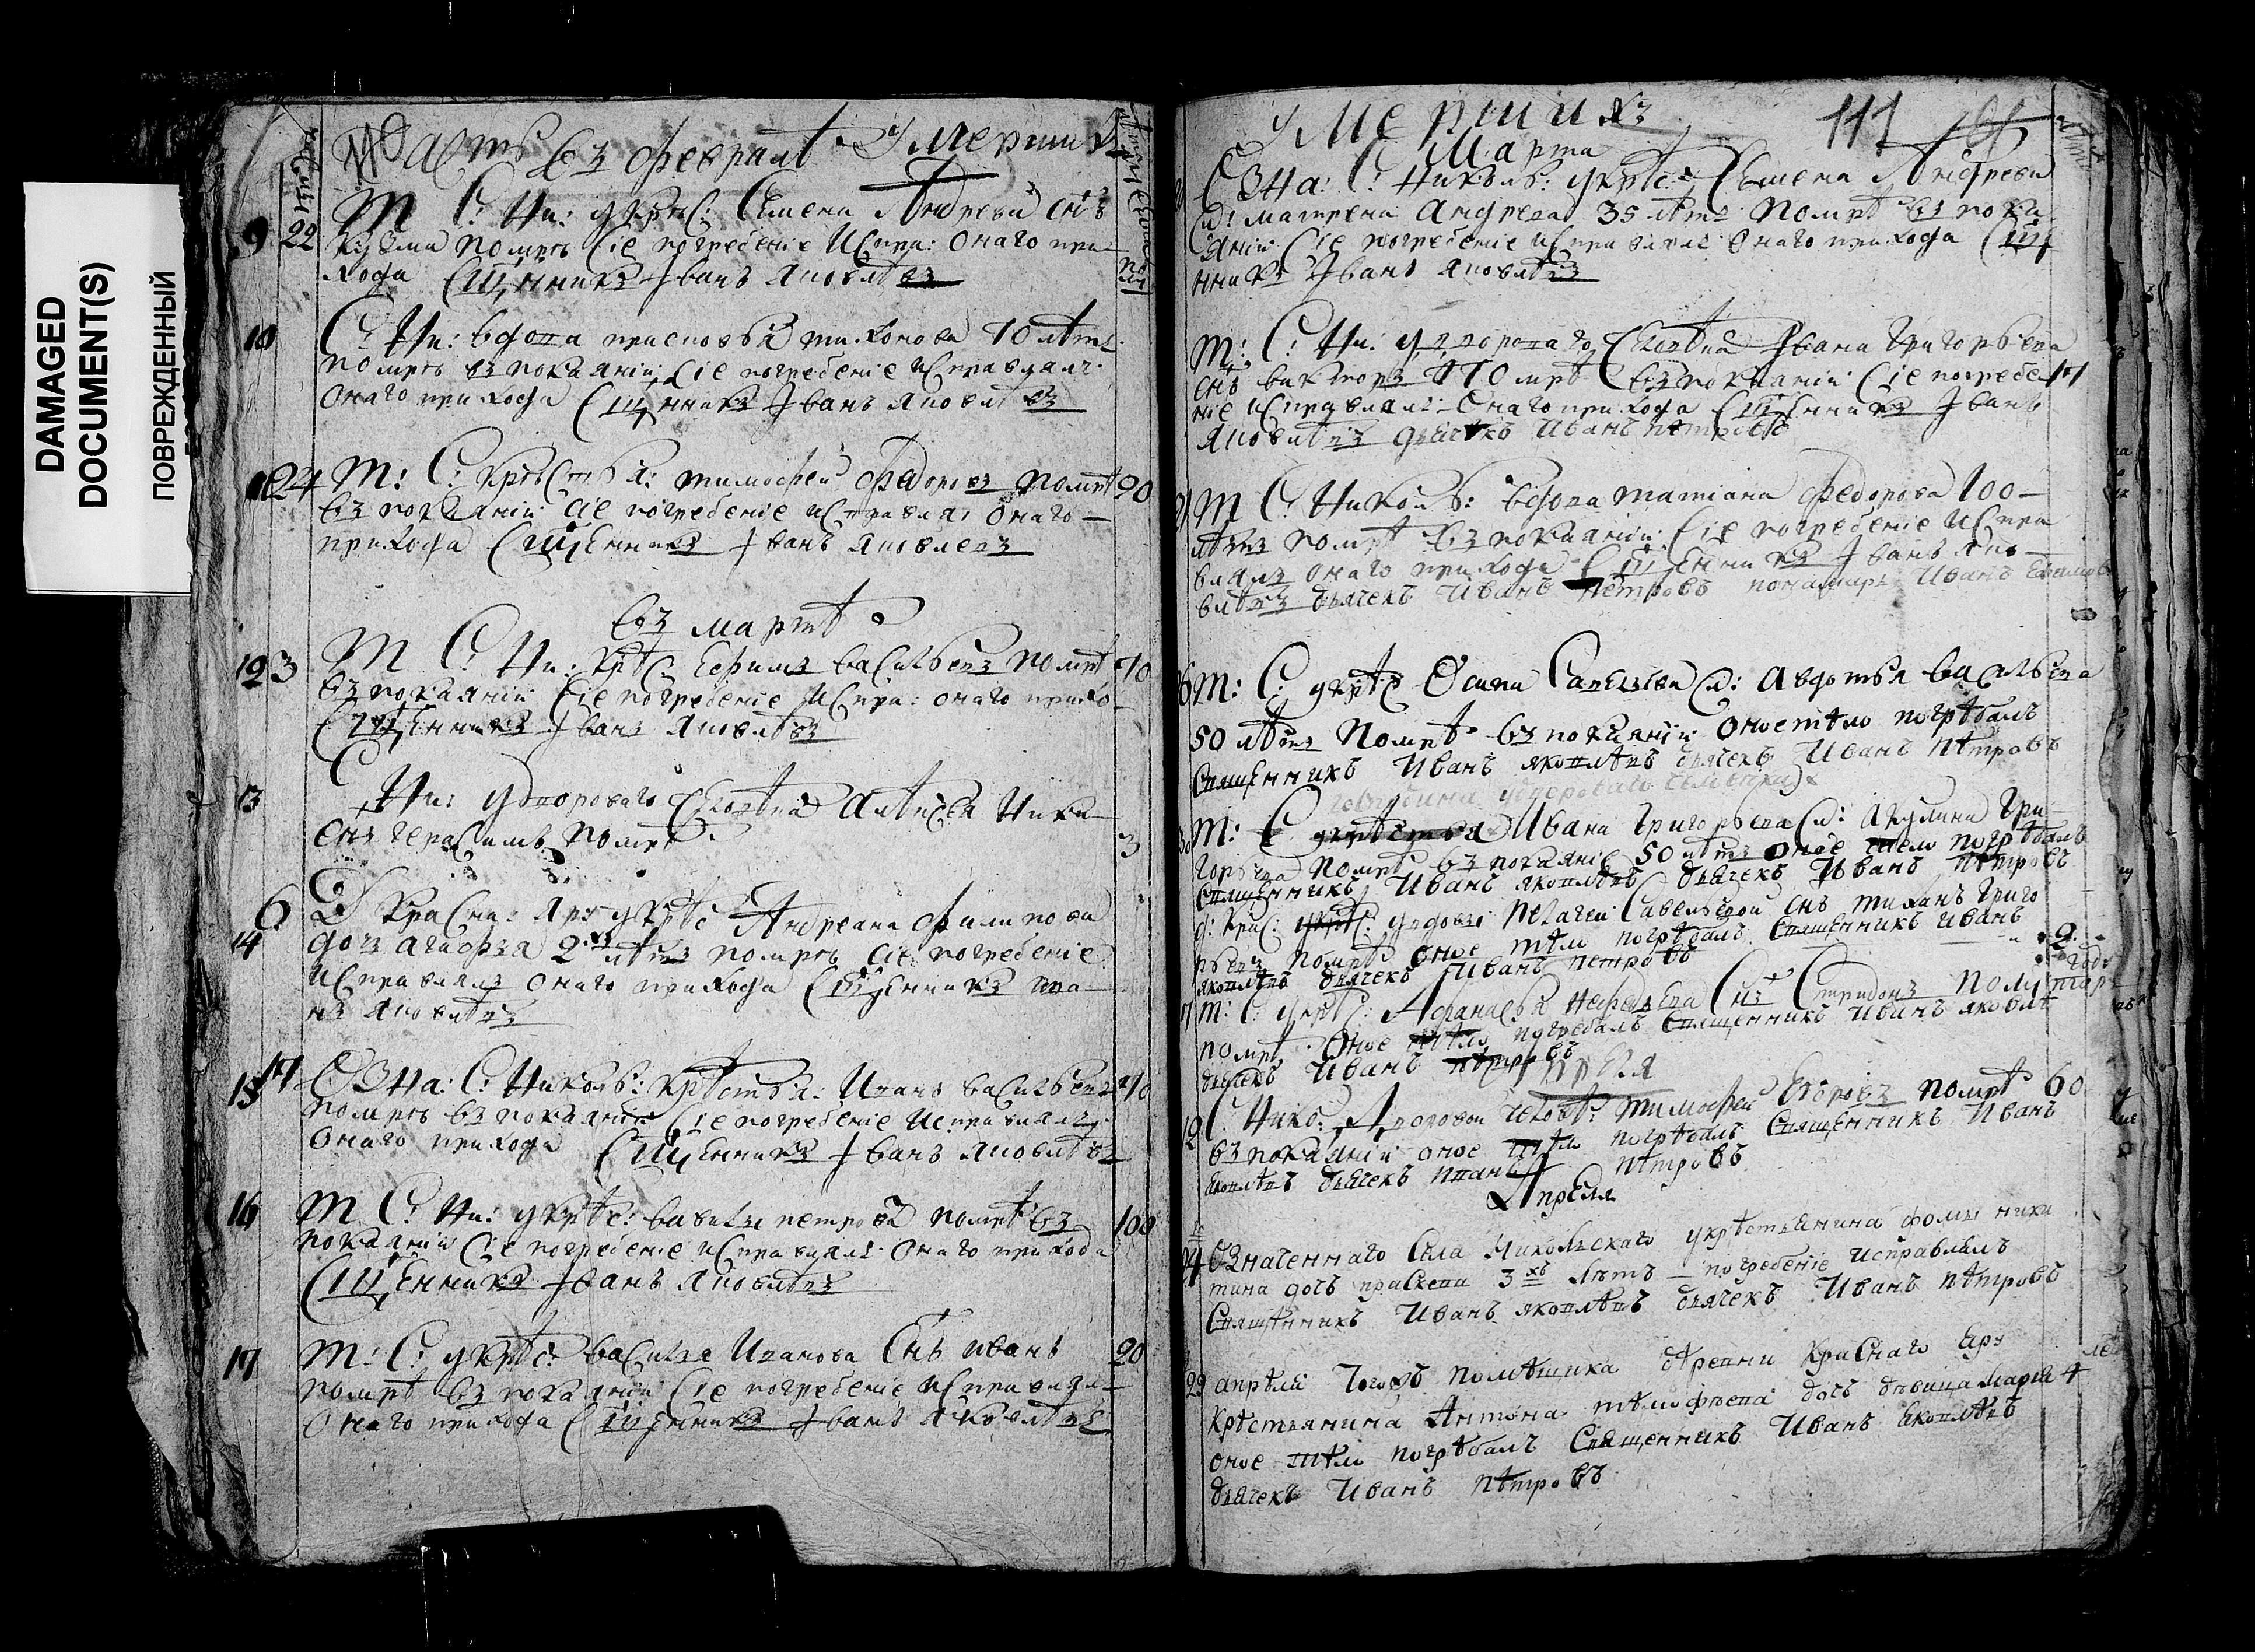 DAMAGED
DOCUMENT(S)
ПОВРЕЖДЕННЫЙ
Часть въ февралѣ Умерших
9 22 Т С: Ни: у крес: Семена Андреева снъ
Кузма помре Сiе погребенiе Испра: онаго при
хода Сщенникъ Iванъ Яковлѣвъ
10 С: Ни: вдова прасковья тихонова 70 лѣтъ
помре въ покаянiи Сiе погребенiе исправлялъ
онаго прихода Сщенникъ Iванъ Яковлѣвъ
24 Т: С: крестья: тимофей Федоровъ помре 90
въ покаянiи Сiе погребенiе исправлял онаго
прихода Сщенникъ Iванъ Яковлевъ
въ мартѣ
12 3 Т С: Ни: крѣс: Ефимъ васильевъ помре 70
въ покаянiи Сiе погребенiе Испра: онаго прихо
Сщенникъ Iванъ Яковлѣвъ
13 С Ни: удворового человѣка Алѣксея Ники
снъ герасимъ помре 3
6
14 Д Красна: Яру у крѣс Андреана Филипова
дочь агафья 2хъ лѣтъ помре Сiе погребенiе
исправлялъ онаго прихода Сщенникъ ива
нъ Яковлѣвъ
17
15 Озна: С: Николь: крѣстья: Иванъ васильевъ 70
помре въ покаянiи Сiе погребенiе исправлялъ
онаго прихода Сщенникъ Iванъ Яковлѣвъ
16 Т С: Ни: у крѣс: василья петрова помре въ 100
покаянiи Сiе погребенiе исправлялъ онаго прихода
Сщенникъ Iванъ Яковлѣвъ
17 Т: С: у крѣс: василья Иванова Снъ иванъ 20
помре въ покаянiи Сiе погребенiе исправлял
онаго прихода Сщенникъ Iванъ Яковлѣвъ
Умершихъ 111
Марта
Озна: С: Николь: у крѣс: Семена Андреева
матрена андреева 35 лѣтъ помре въ пока
янiи Сiе погребенiе исправлялъ онаго прихода Сще
нникъ Iванъ Яковлѣвъ
Т: С: Ни: удворового человѣка Iвана Григорьева
снъ викторъ 70 мре въ покаянiи Сiе погребе
нiе исправлялъ онаго прихода Сщенникъ Iванъ
Яковлѣвъ дьячекъ Иванъ пѣтровъ
Т С: Николь: вдова татiана федорова 100
лѣтъ помре въ покаянiи Сiе погребенiе испра
влялъ онаго прихода Сщенникъ Iванъ Яко
влѣвъ дьячекъ Иванъ пѣтровъ понамарь Иванъ
Т: С: у крѣс Осипа Савельева авдотья васильева
50 лѣтъ помре въ покаянiи Оное тѣло погрѣбалъ
Священникъ Иванъ яковлѣвъ дьячекъ Иванъ пѣтровъ
удворового человѣка
Т: С Ивана Григорьева акулина Гри
горьева помре въ покаянiе 50 лѣтъ Оное тѣло погрѣбалъ
Священникъ Иванъ яковлѣвъ дьячекъ Iванъ пѣтровъ
д: Крас: у вдовы Пелагеи Савельевой снъ тиханъ Григо
рьевъ помре Оное тѣло погрѣбалъ Священникъ Иванъ 2
яковлѣвъ дьячекъ Иванъ петровъ года
Т: С: у крѣс: Афанасья нефедьева Снъ Спиридонъ полу
помре Оное тѣло погребалъ Священникъ Иванъ яковлѣ
дьячекъ Иванъ пѣтровъ
Апреля
12 С: Нико: Дворовой человѣ: тимофей Егоровъ помре 60
въ покаянiи оное тѣло погрѣбалъ Священникъ Иванъ
яковлѣвъ дьячекъ Иванъ пѣтровъ
Апреля
Означеннаго Села Никольскаго у крѣстьянина фомы ники
тина дочь прасковя 3хъ лѣтъ погребение исправлялъ
Священникъ Иванъ яковлѣвъ дьячекъ Иванъ пѣтровъ
29 апрѣля Тогожъ помѣщика дѣревни Краснаго Яру
Крѣстьянина Антона тѣмофѣева дочь дѣвица Марья 4
оное тѣло погрѣбалъ Священникъ Иванъ яковлѣвъ
дьячекъ Иванъ пѣтровъ